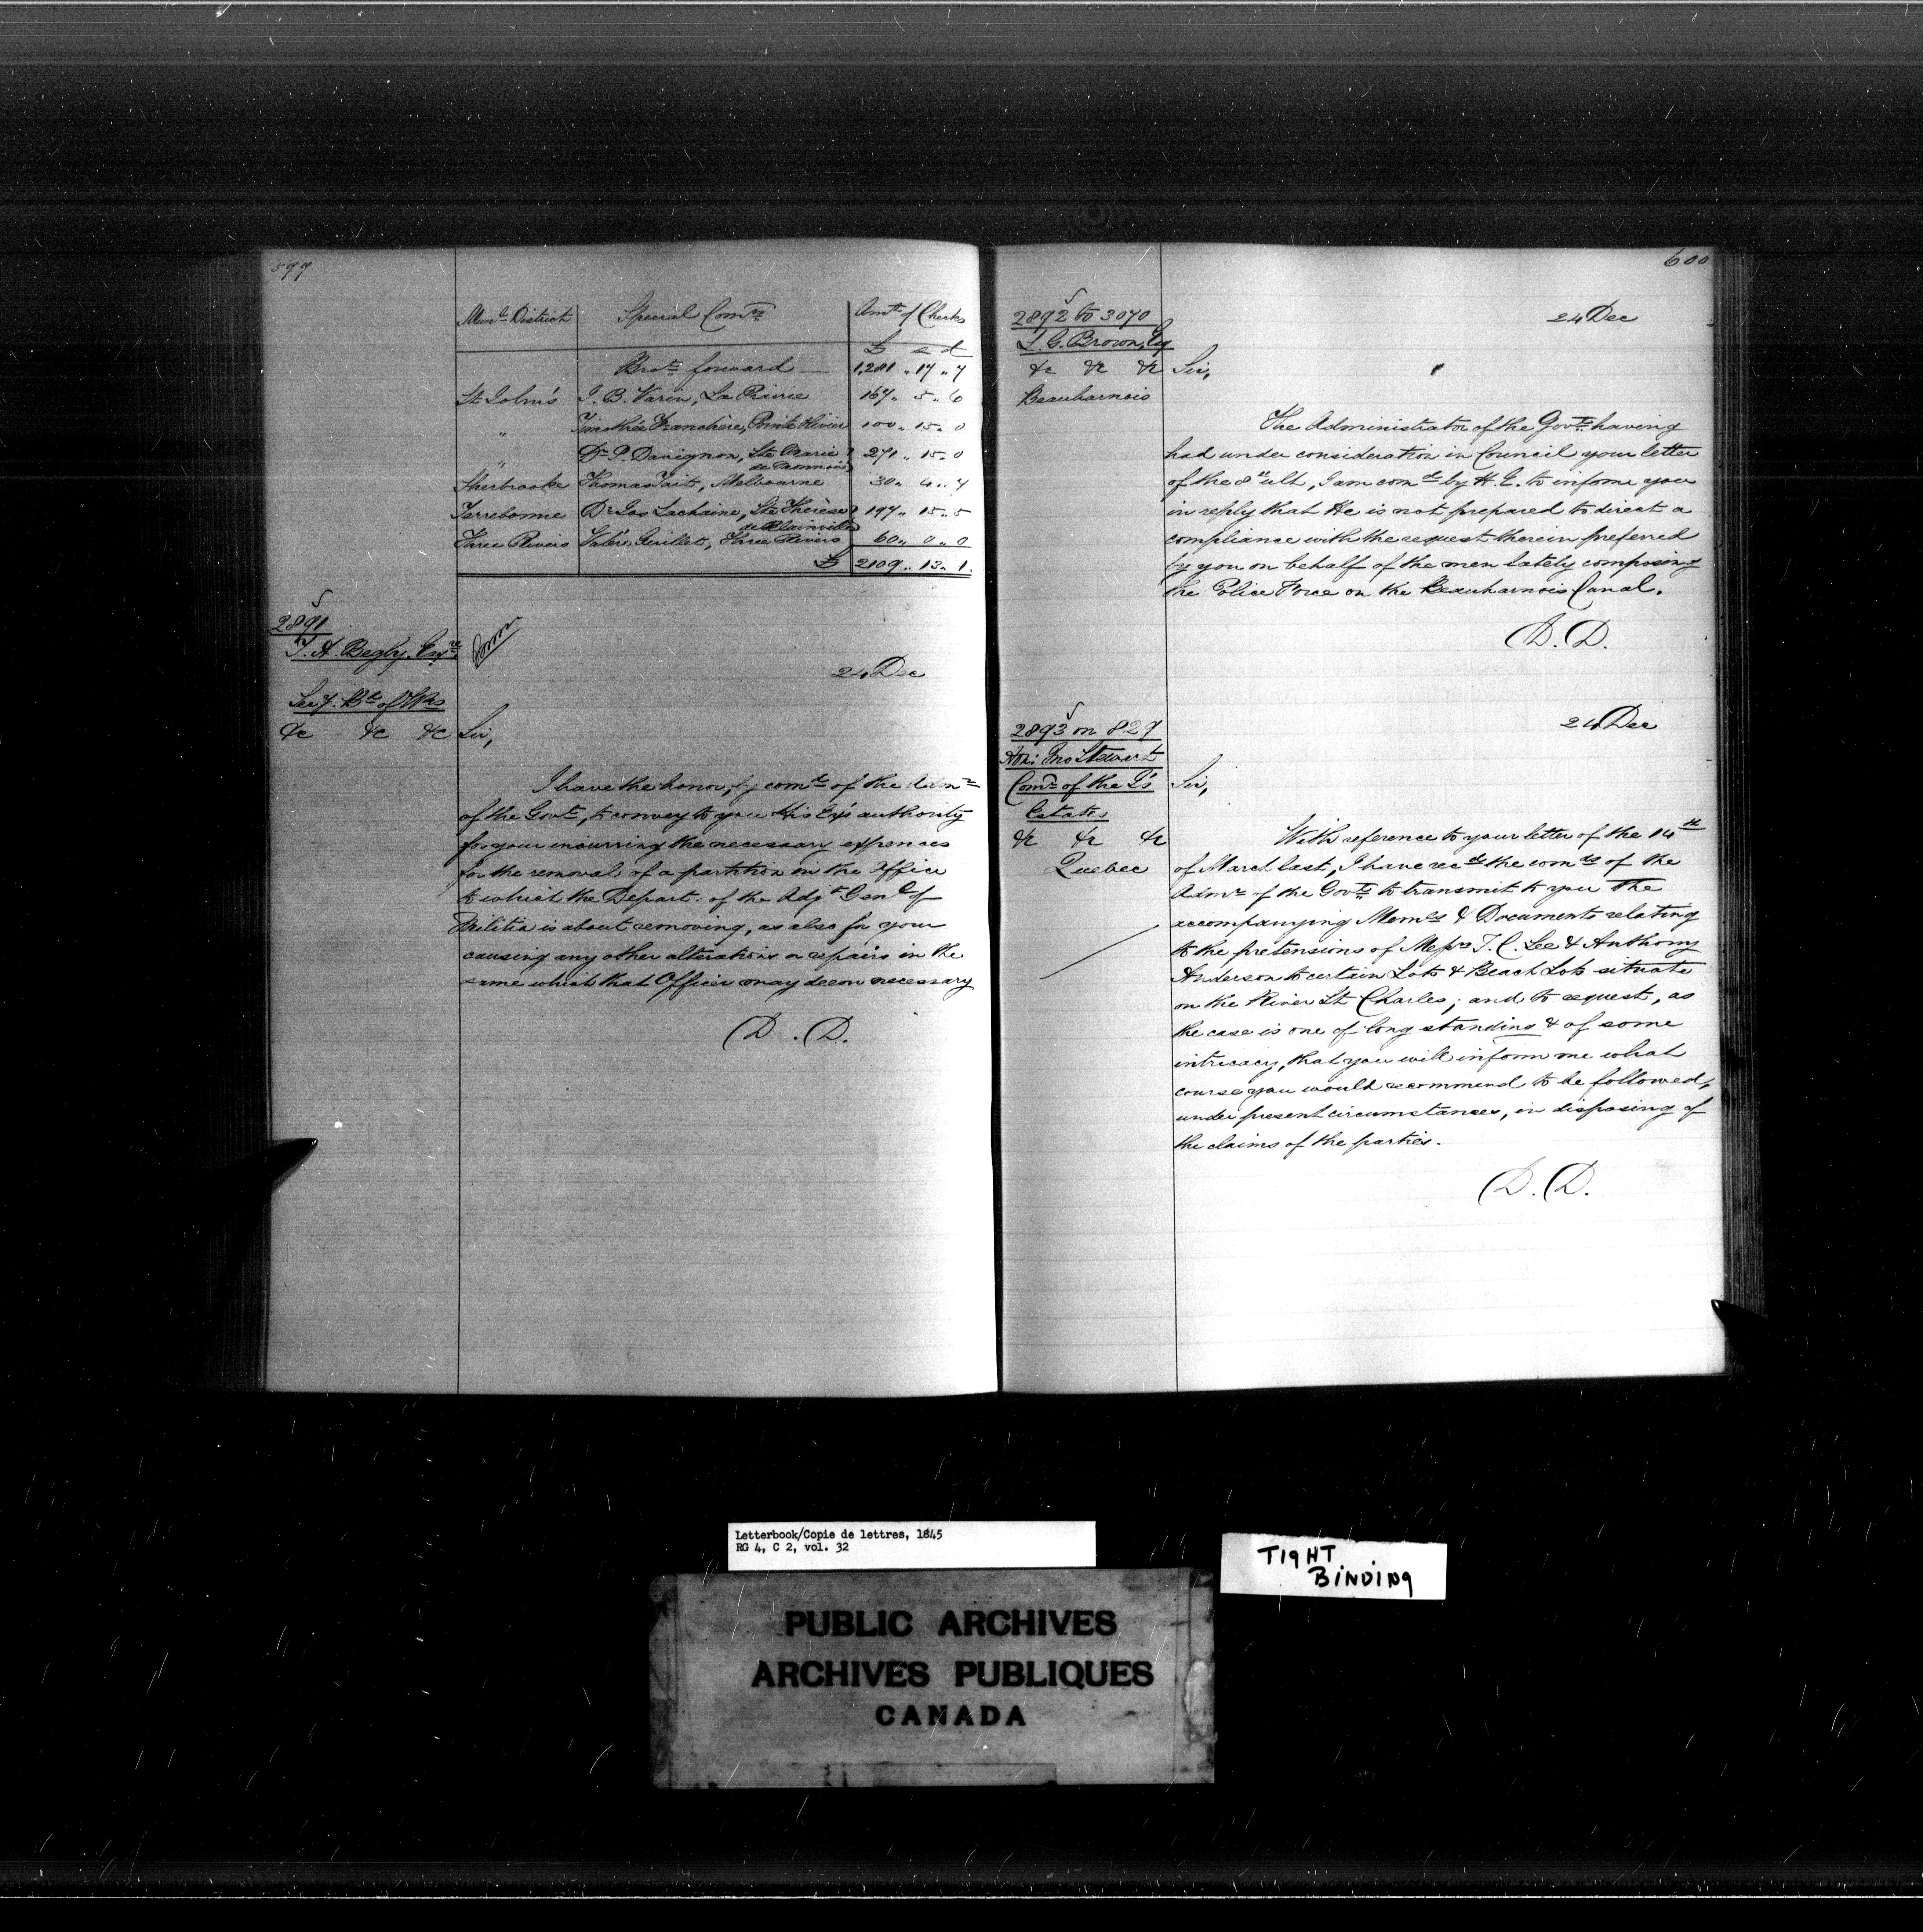 599
Mun.l District Special Com.rs Am.t of Checks
£ s d
Bro.t forward — 1,281 " 17 " 7
St John's J. B. Varin, La Prairie 167 " 5 " 6
" Timothée Franchère, Pointe Olivier 100 " 15 " 0
" Dr P. Davignon, Ste Marie de Monnoir 271 " 15 " 0
Sherbrooke Thomas Tait, Melbourne 30 " 4 " 7
Terrebonne Dr Lachaine, Ste Thérèse de Blainville 197 " 15 " 5
Three Rivers Valère Guillet, Three Rivers 60 " 0 " 0
£ 2109 " 13 " 1
2891
T. A. Begly Esq.re
Sec.y B.d of Wks
&c &c &c
24 Dec
Sir,
I have the honor, by com.d of the Adm.r
of the Gov.t, to convey to you His Ex's authority
for your incurring the necessary expences
for the removal of a partition in the Office
to which the Depart. of the Adj.t Gen.l of
Militia is about removing, as also for your
causing any other alterations or repairs in the
same which that Officer may deem necessary
(D. (D.
600
2892 to 3070
L. G. Brown, Esq
&c &c &c
Beauharnois
24 Dec
Sir,
The Administrator of the Gov.t having
had under consideration in Council your letter
of the 8th ult, I am com.d by H. E. to inform you
in reply that He is not prepared to direct a
compliance with the request therein preferred
by you on behalf of the men lately composing
the Police Force on the Beauharnois Canal.
(D. (D.
2893 on 829
Hon: Jno Stewart
Com.r of the J's
Estates
&c &c &c
Quebec
24 Dec
Sir,
With reference to your letter of the 14th
of March last, I have rec.d the com.ds of the
Adm.r of the Gov.t to transmit to you the
accompanying Mem.ls & Documents relating
to the pretensions of Messrs T. C. Lee & Anthony
Anderson to certain Lots & Beach Lots situate
on the River St Charles; and to request, as
the case is one of long standing & of some
intricacy, that you will inform me what
course you would recommend to be followed,
under present circumstances, in disposing of
the claims of the parties.
(D. (D.
Letterbook/Copie de lettres, 1845
RG 4, C 2, vol. 32
TIGHT
BINDING
PUBLIC ARCHIVES
ARCHIVES PUBLIQUES
CANADA